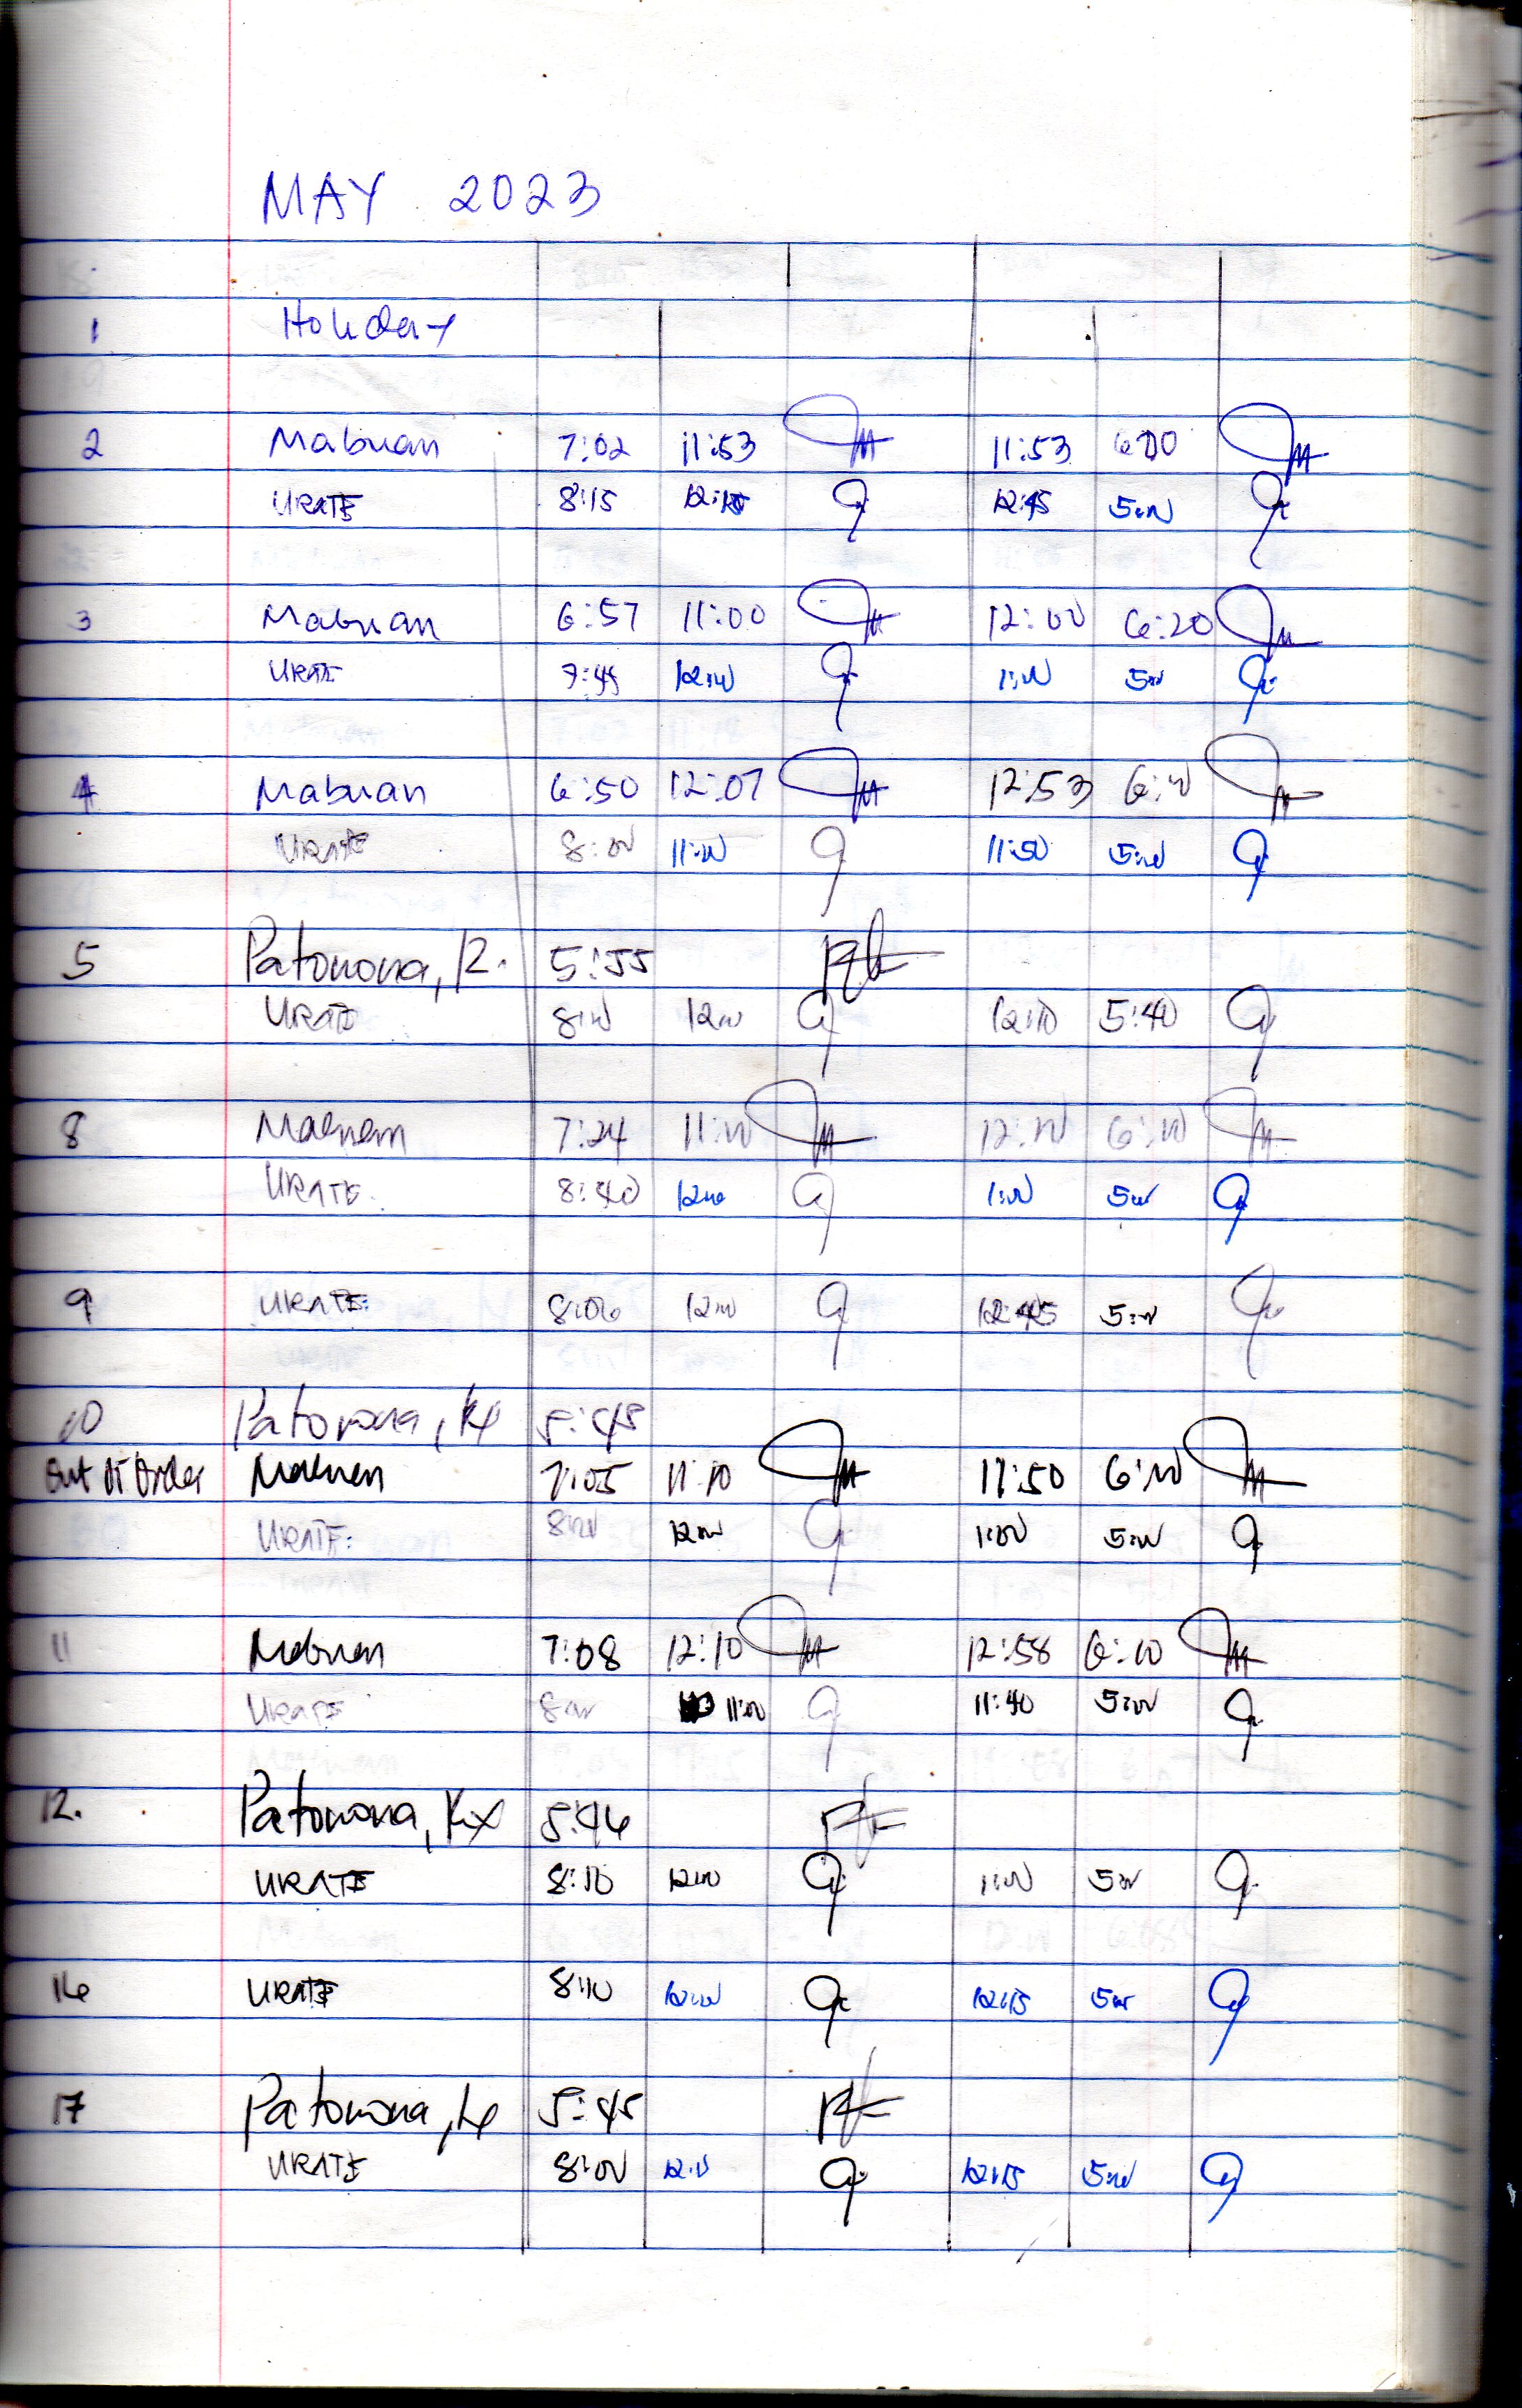 MAY 2023
1 Holiday
2 Mabuan 7:02 11:53 11:53 6:00
URATE 8:15 12:45 5:00
3 Mabuan 6:57 11:00 12:00 6:20
URATE 7:45 12:00 1:00 5:00
4 Mabuan 6:50 12:07 12:53 6:10
URATE 8:00 11:00 11:50 5:00
5 Patonona, R. 5:55
URATE 8:00 12:00 12:10 5:40
8 Mabuan 7:24 11:10 12:10 6:10
URATE. 8:40 12:00 1:00 5:00
9 URATE 8:06 12:00 12:45 5:00
10 Patonona, 5:45
Out Of Order Mabuan 7:05 11:10 11:50 6:10
URATE 8:00 12:00 1:00 5:00
11 Mabuan 7:08 12:10 12:58 6:10
URATE 8:00 11:00 11:40 5:00
12. Patonona, 5:46
URATE 8:10 12:00 1:00 5:00
16 URATE 8:10 12:00 12:15 5:00
17 Patonona, 5:45
URATE 8:00 12:00 12:15 5:00